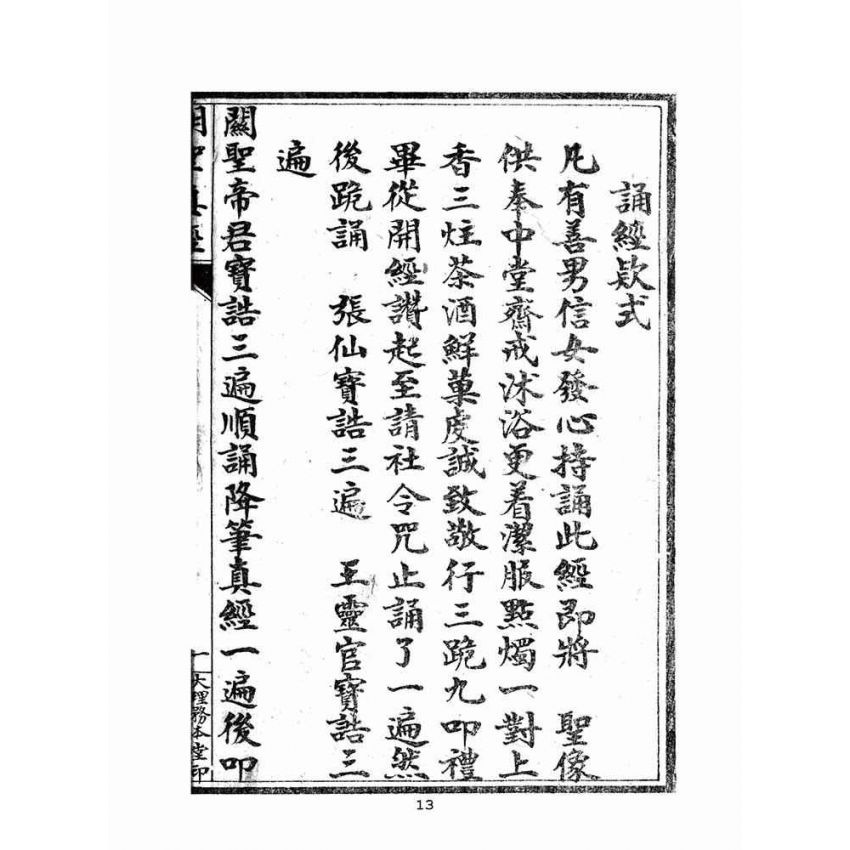 誦經欵式
凡有善男信女發心持誦此經即將　聖像
供奉中堂齋戒沐浴更着潔服點燭一對上
香三炷茶酒鮮菓虔誠致敬行三跪九叩禮
畢從開經讚起至請社令咒止誦了一遍然
後跪誦　張仙寶誥三遍　王靈官寶誥三
遍
關聖帝君寶誥三遍順誦降筆真經一遍後叩
一
大理務本堂印
13